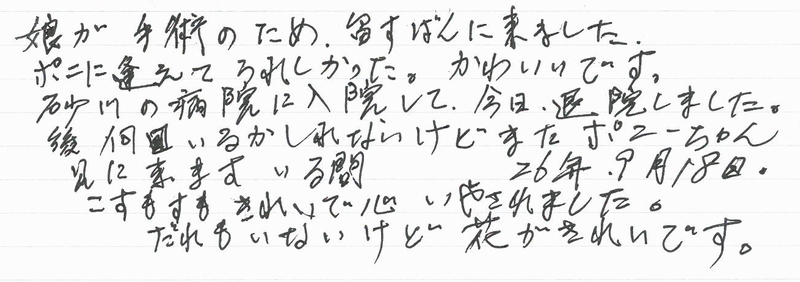 娘が手術のため、留すばんに来ました.
ポニに逢えてうれしかった。かわいいです。
砂川の病院に入院して、今日、退院しました。
後何日いるかしれないけどまたポニーちゃん
見に来ます いる間 26年.9月18日。
こすもすもきれいで心いやされました。
だれもいないけど花がきれいです。